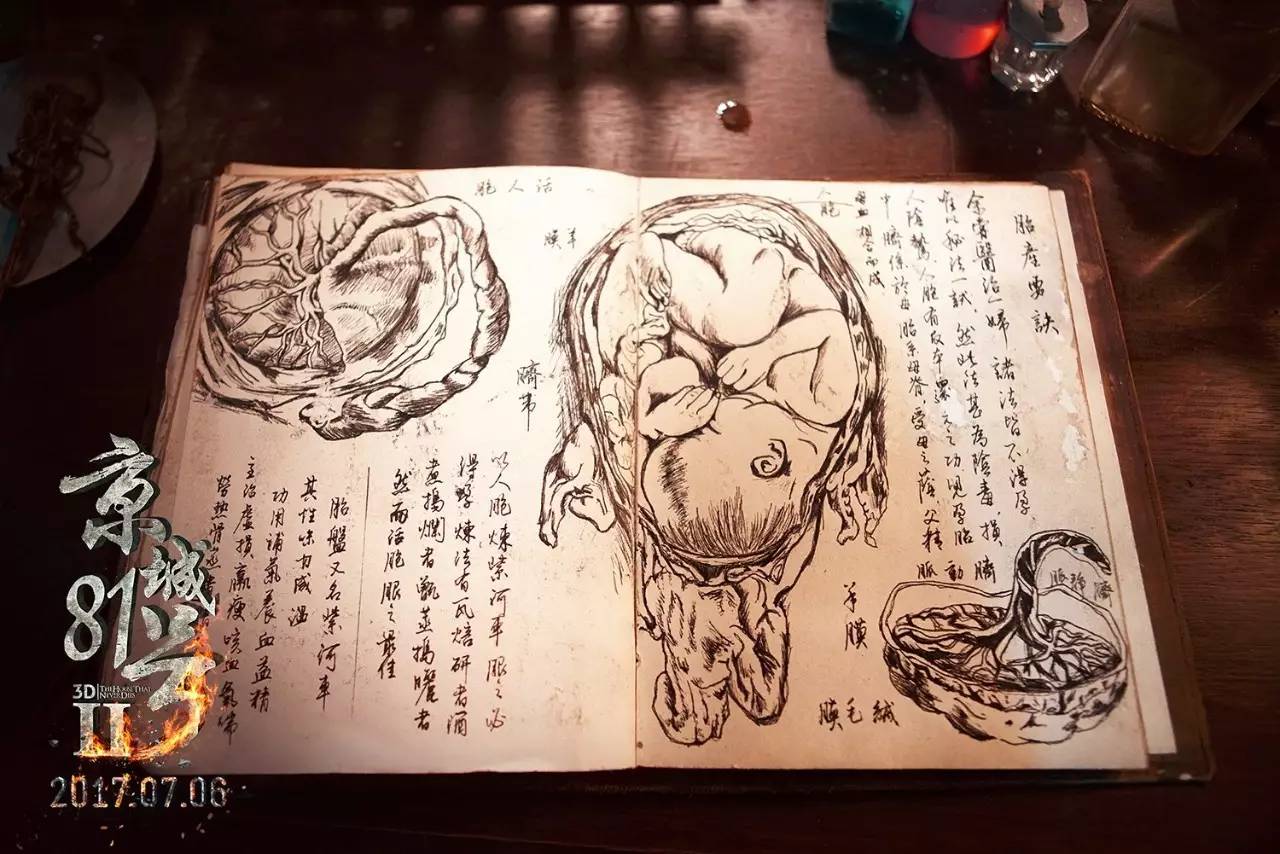 胞人活
膜羊
臍帶
以人胞煉紫河車服之必
煉法有瓦焙研者酒
煮搗爛者甑蒸搗曬者
然而活胞服之最佳
胎盤又名紫河車
其性味甘咸溫
功用補氣養血益精
主治虛損羸瘦咳血氣喘
勞熱骨
胎產要訣
余嘗醫治一婦 諸法皆不得孕
惟以秘法一試、然此法甚為險毒,損
人陰騭 人胞有返本還元之功 見孕胎
中 臍係於母 胎系母脊 受母之蔭 父精
母血相合而成
人胞
脈動臍
脈靜臍
羊膜
膜毛絨
京城81号
3D THE HOUSE THAT NEVER DIES
II
2017.07.06